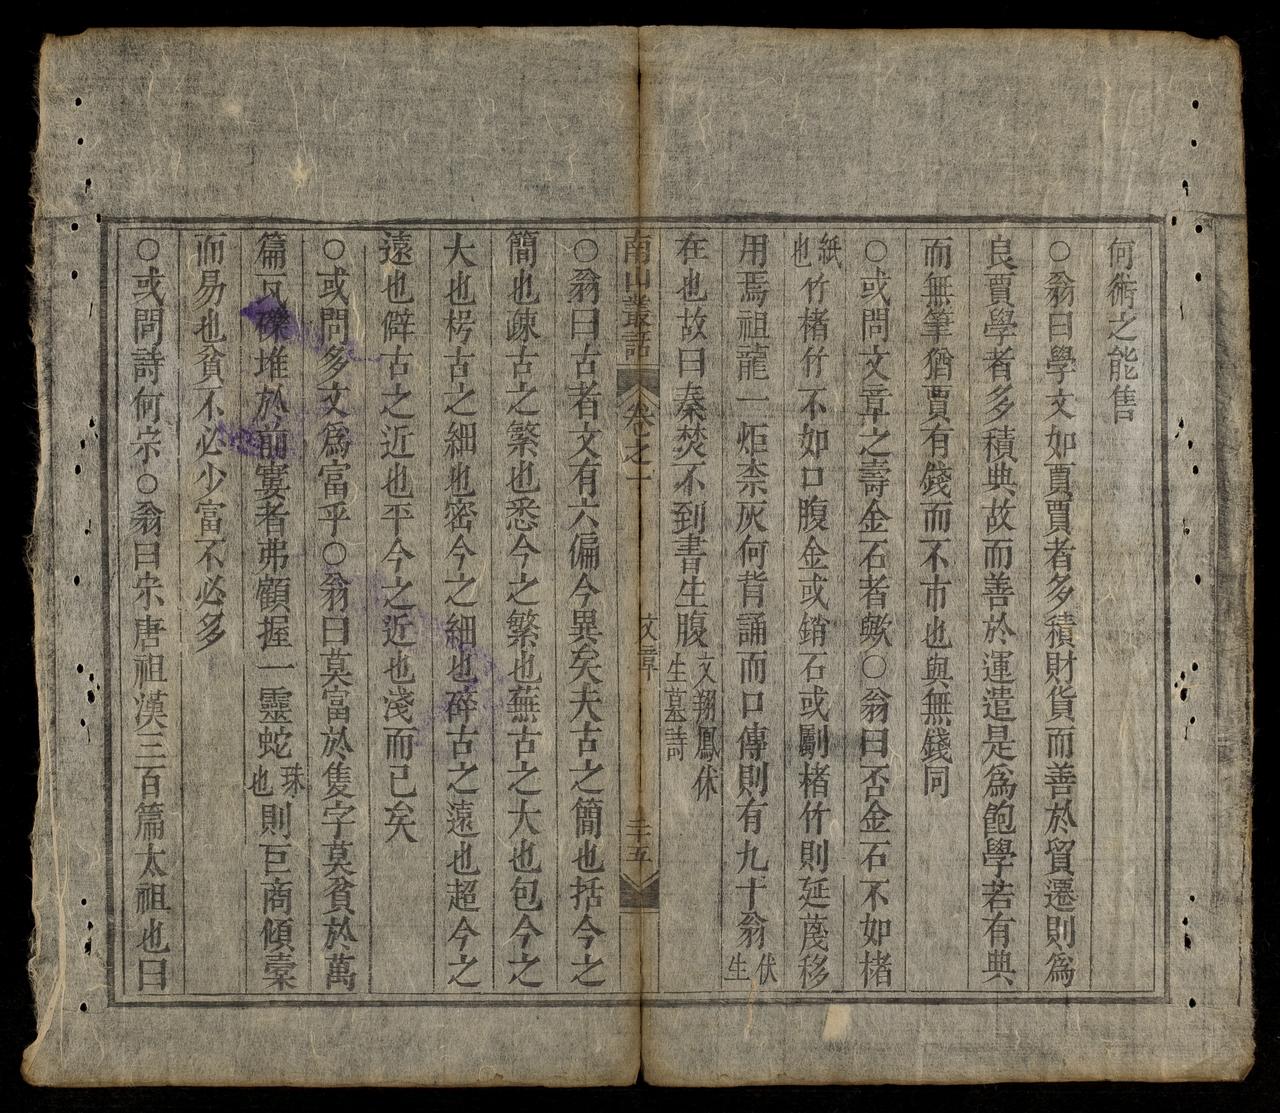 何術之能售
○翁曰學文如賈賈者多積財貨而善於貿遷則爲
良賈學者多積典故而善於運遣是爲飽學若有典
而無筆猶賈有錢而不市也與無錢同
○或問文章之壽金石者歟○翁曰否金石不如楮
紙也竹楮竹不如口腹金或銷石或劚楮竹則延蔑移
用焉祖龍一炬柰灰何背誦而口傳則有九十翁伏生
在也故曰秦焚不到書生腹文翔鳳伏生墓詩
南山叢話 卷之一 文章 三五
○翁曰古者文有六偏今異矣夫古之簡也括今之
簡也疎古之繁也悉今之繁也蕪古之大也包今之
大也枵古之細也密今之細也碎古之遠也超今之
遠也僻古之近也平今之近也淺而已矣
○或問多文爲富乎○翁曰莫富於隻字莫貧於萬
篇瓦礫堆於前窶者弗顧握一靈蛇珠也則巨商傾橐
而易也貧不必少富不必多
○或問詩何宗○翁曰宗唐祖漢三百篇太祖也曰